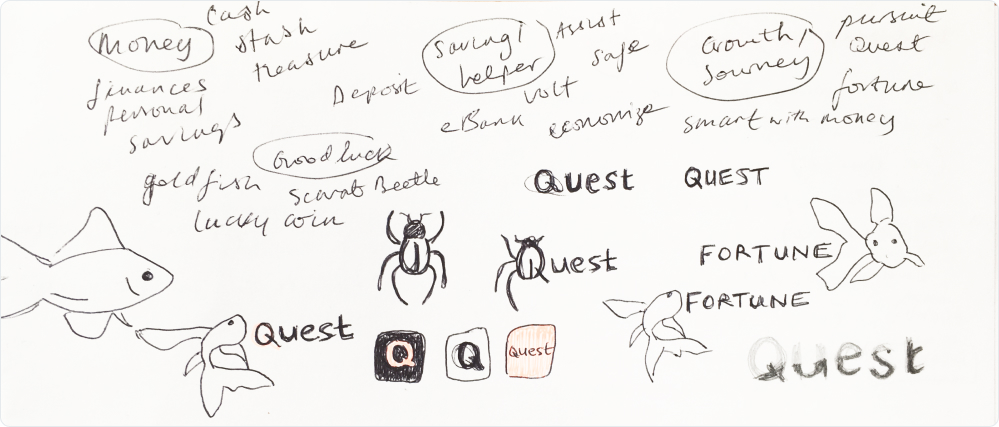 Cash
Money
stash
treasure
finances
personal
savings
Saving/
helper
Assist
safe
Deposit
volt
eBank
economize
Growth/
Journey
pursuit
Quest
fortune
smart with money
Good luck
gold fish
Scarab Beetle
lucky coin
Quest
QUEST
Quest
FORTUNE
FORTUNE
Quest
Q
Q
Quest
Quest